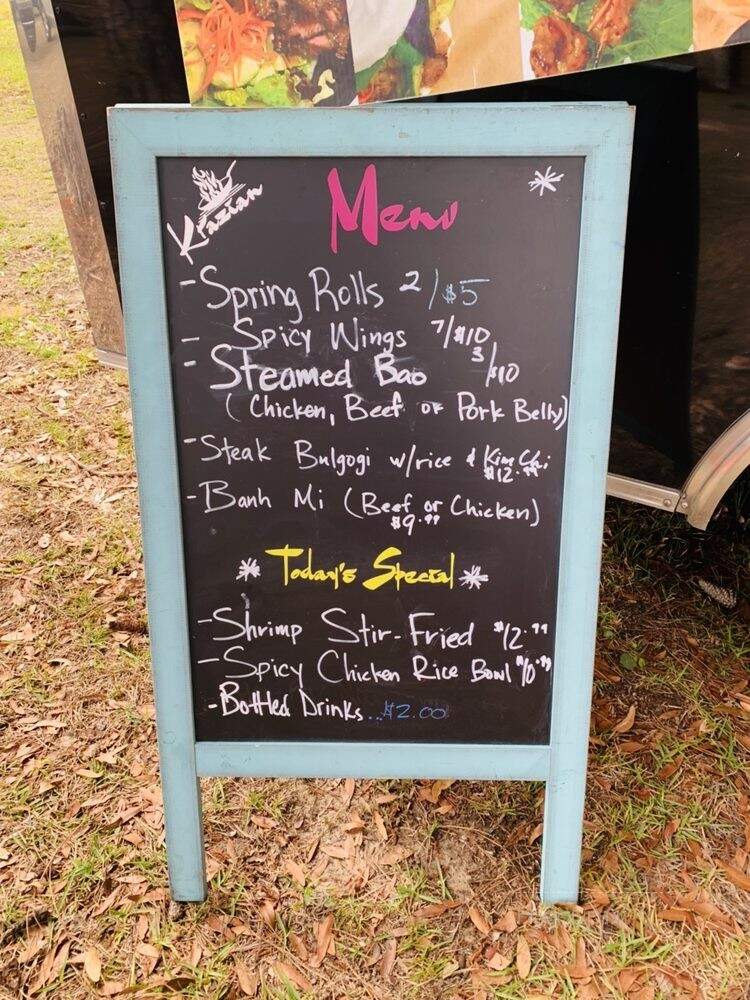 Krazian
Menu
- Spring Rolls 2/$5
- Spicy Wings 7/$10
- Steamed Bao 3/$10
( Chicken, Beef or Pork Belly)
- Steak Bulgogi w/rice & Kim Chi
$12.99
- Banh Mi (Beef or Chicken)
$9.99
* Today's Special *
- Shrimp Stir-Fried $12.99
- Spicy Chicken Rice Bowl $10.99
- Bottled Drinks...$2.00